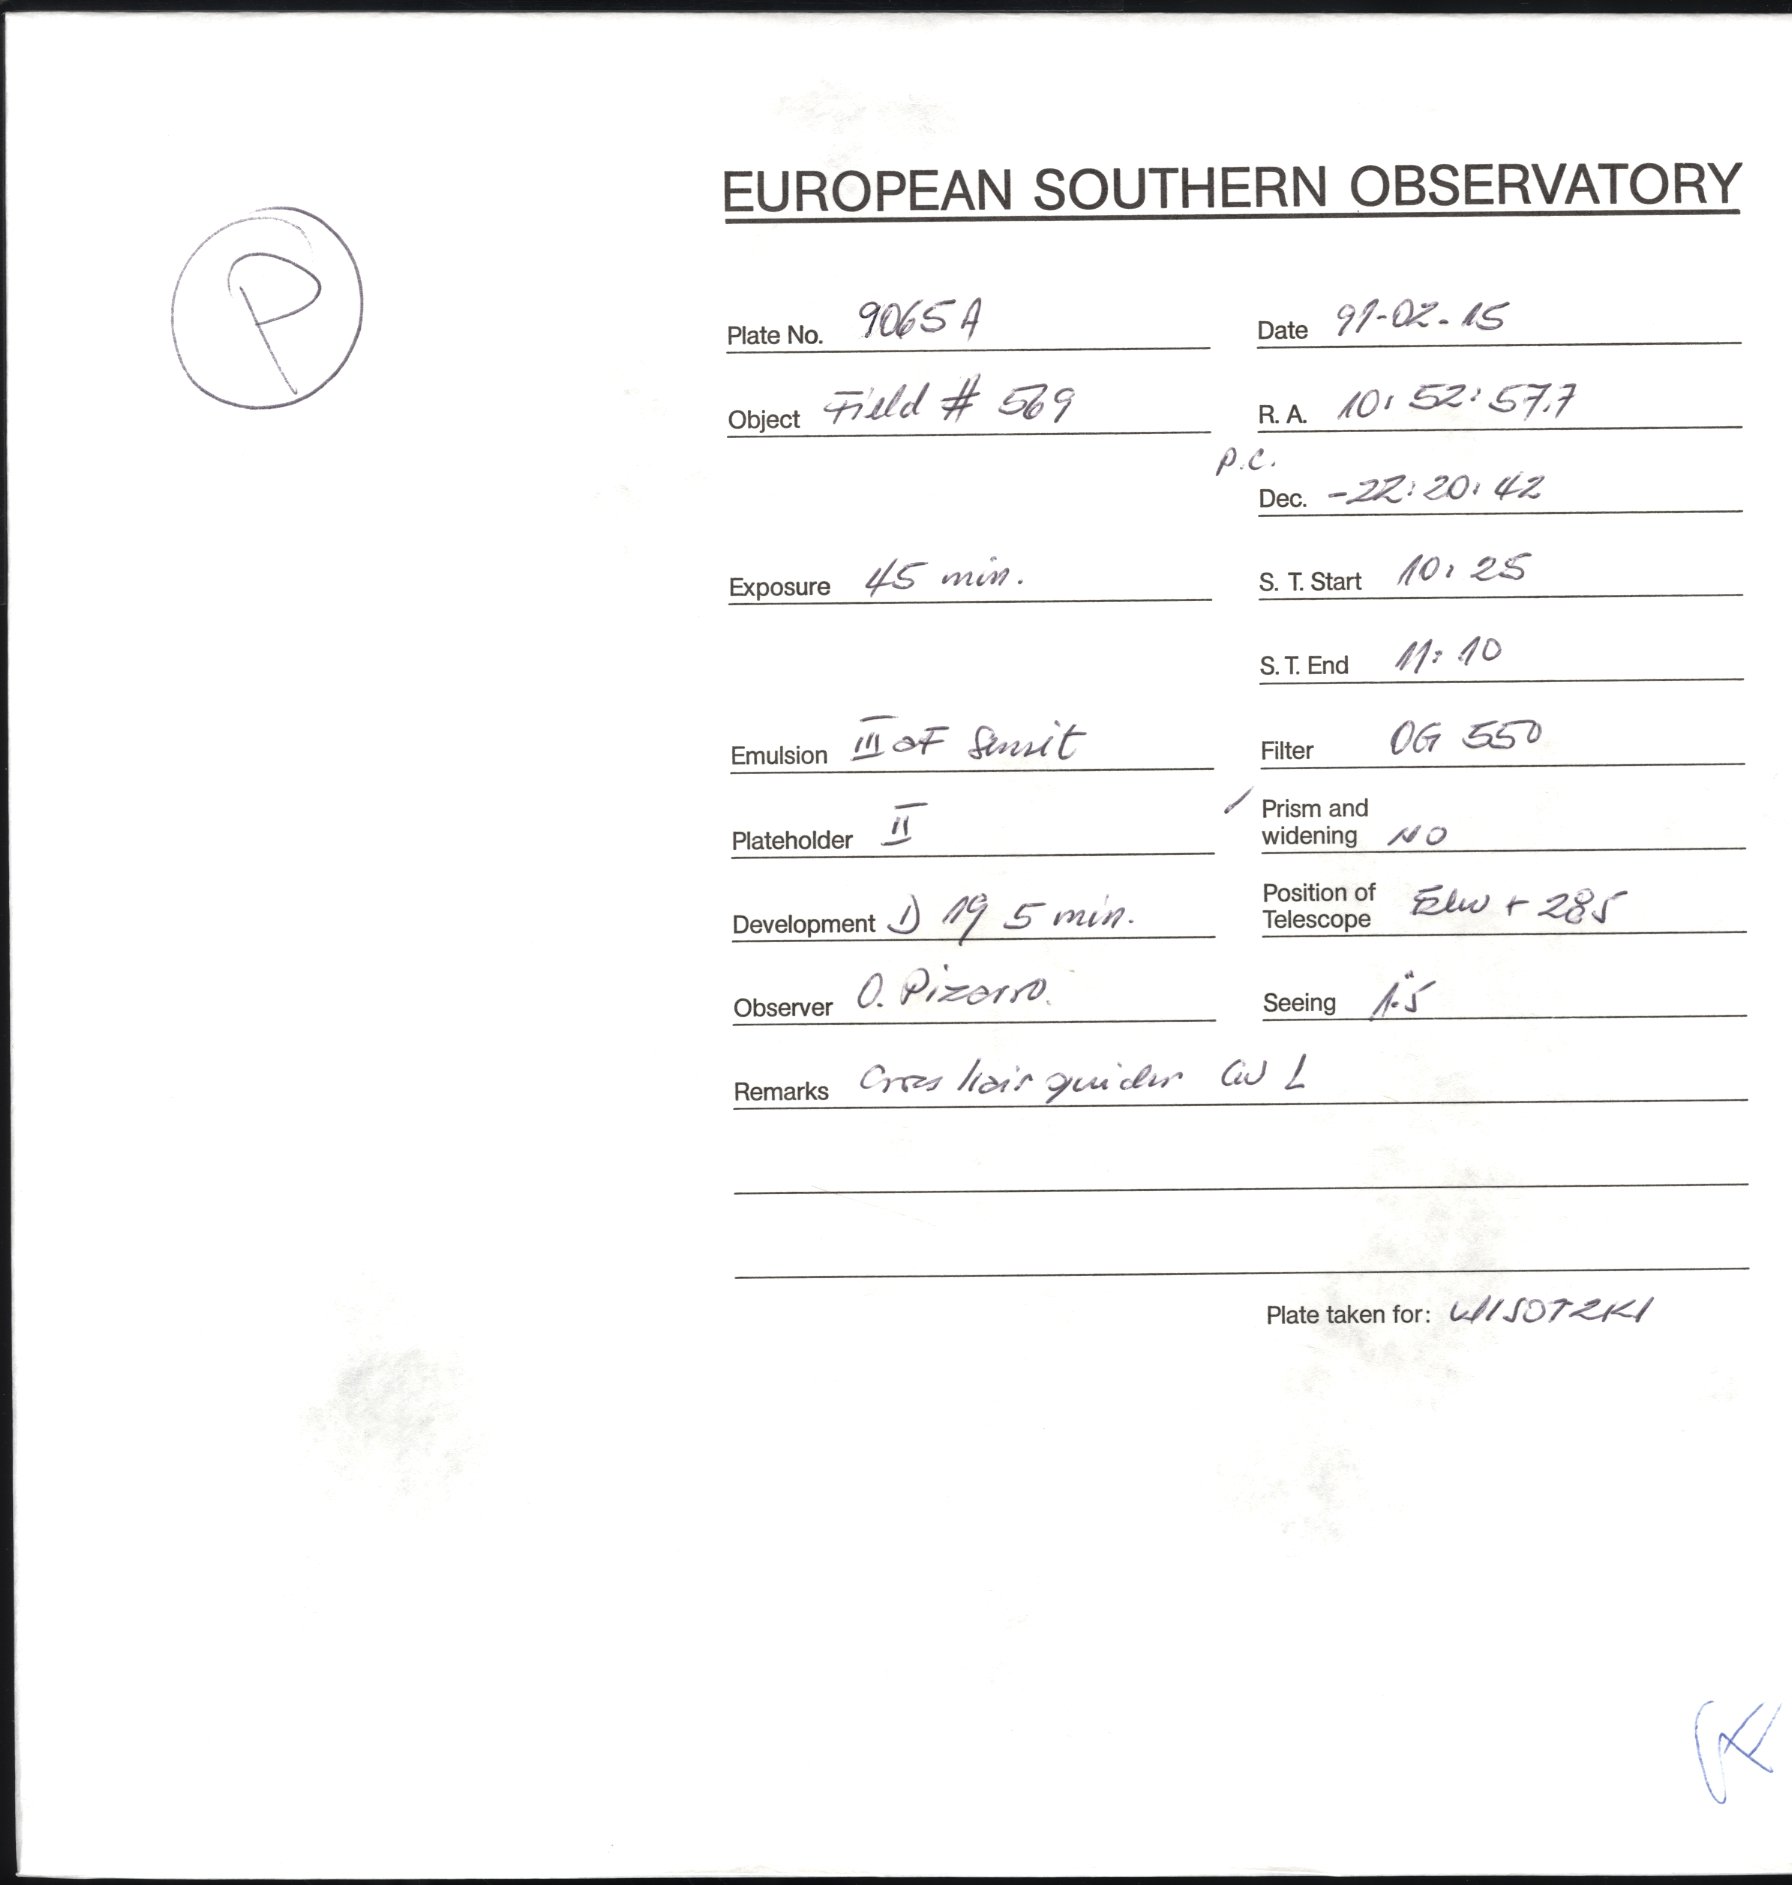 EUROPEAN SOUTHERN OBSERVATORY
P
Plate No. 9065 A Date 91-02-15
Object Field # 569 R. A. 10: 52: 57.7
P.C.
Dec. -22: 20: 42
Exposure 45 min. S. T. Start 10: 25
S. T. End 11: 10
Emulsion III aF Sensit Filter OG 550
Plateholder II Prism and
widening NO
Development D 19 5 min. Position of
Telescope + 285
Observer O. Pizarro. Seeing 1.″5
Remarks Cross hair guider L
Plate taken for: WISOTZKI